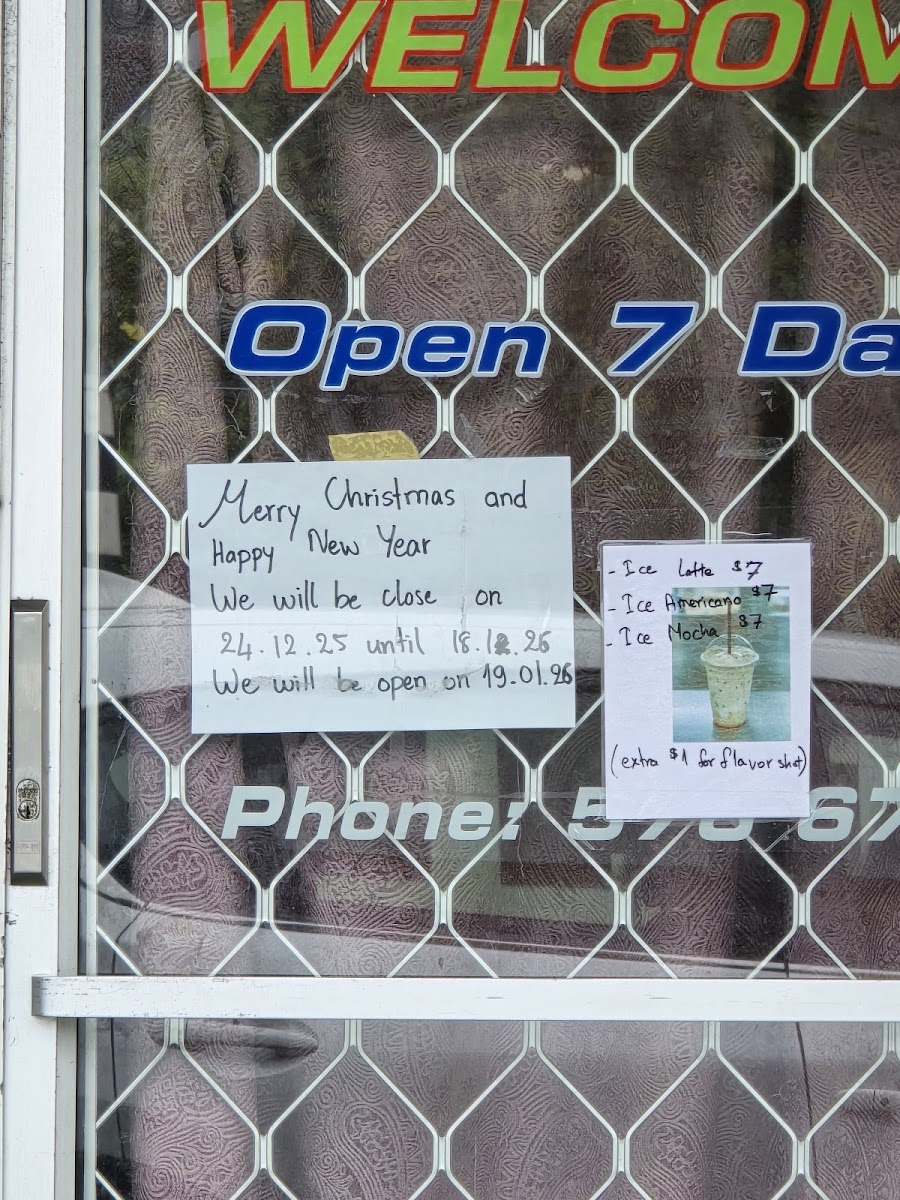 WELCOM
Open 7 Da
Merry Christmas and
Happy New Year
We will be close on
24.12.25 until 18.12.26
We will be open on 19.01.26
- Ice Latte $7
- Ice Americano $7
- Ice Mocha $7
(extra $1 for flavor shot)
Phone: 578 67